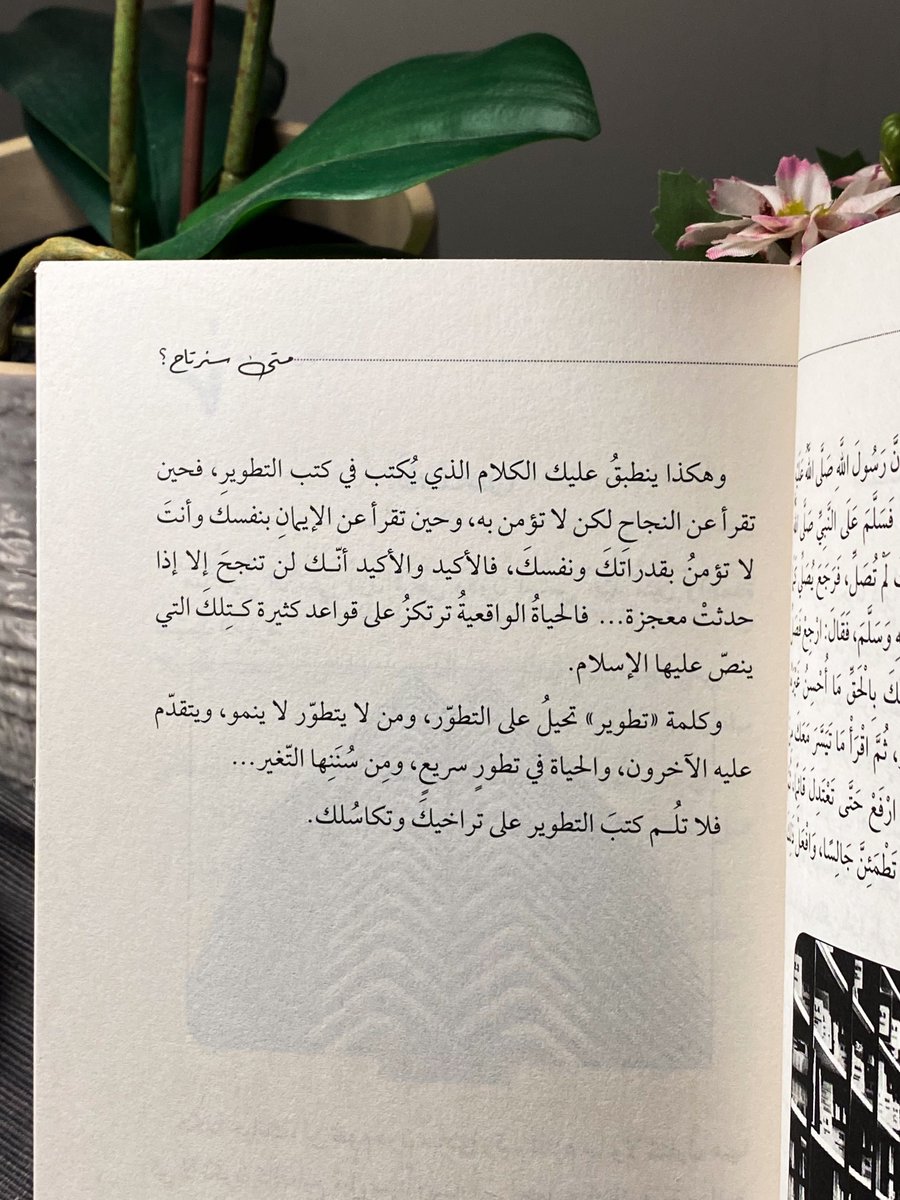 نَّ رَسُولَ اللَّهِ صَلَّى اللَّهُ
فَسَلَّمَ عَلَى النَّبِيِّ صَلَّى
لَمْ تُصَلِّ، فَرَجَعَ يُصَلِّي
وَسَلَّمَ، فَقَالَ: ارْجِعْ فَصَلِّ
بِالْحَقِّ مَا أُحْسِنُ
ثُمَّ اقْرَأْ مَا تَيَسَّرَ مَعَكَ
ارْفَعْ حَتَّى تَعْتَدِلَ
تَطْمَئِنَّ جَالِسًا، وَافْعَلْ
متى سنرتاح؟
وهكذا ينطبقُ عليك الكلام الذي يُكتب في كتب التطويرِ، فحين
تقرأ عن النجاح لكن لا تؤمن به، وحين تقرأ عن الإيمانِ بنفسك وأنتَ
لا تؤمنُ بقدراتَكَ ونفسكَ، فالأكيد والأكيد أنّـك لن تنجحَ إلا إذا
حدثتْ معجزة... فالحياةُ الواقعيةُ ترتكزُ على قواعد كثيرة كـتِلكَ التي
ينصّ عليها الإسلام.
وكلمة «تطوير» تحيلُ على التطوّر، ومن لا يتطوّر لا ينمو، ويتقدّم
عليه الآخرون، والحياة في تطورٍ سريعٍ، ومِن سُنَنِها التّغير...
فلا تلُــم كتبَ التطوير على تراخيكَ وتكاسُلك.